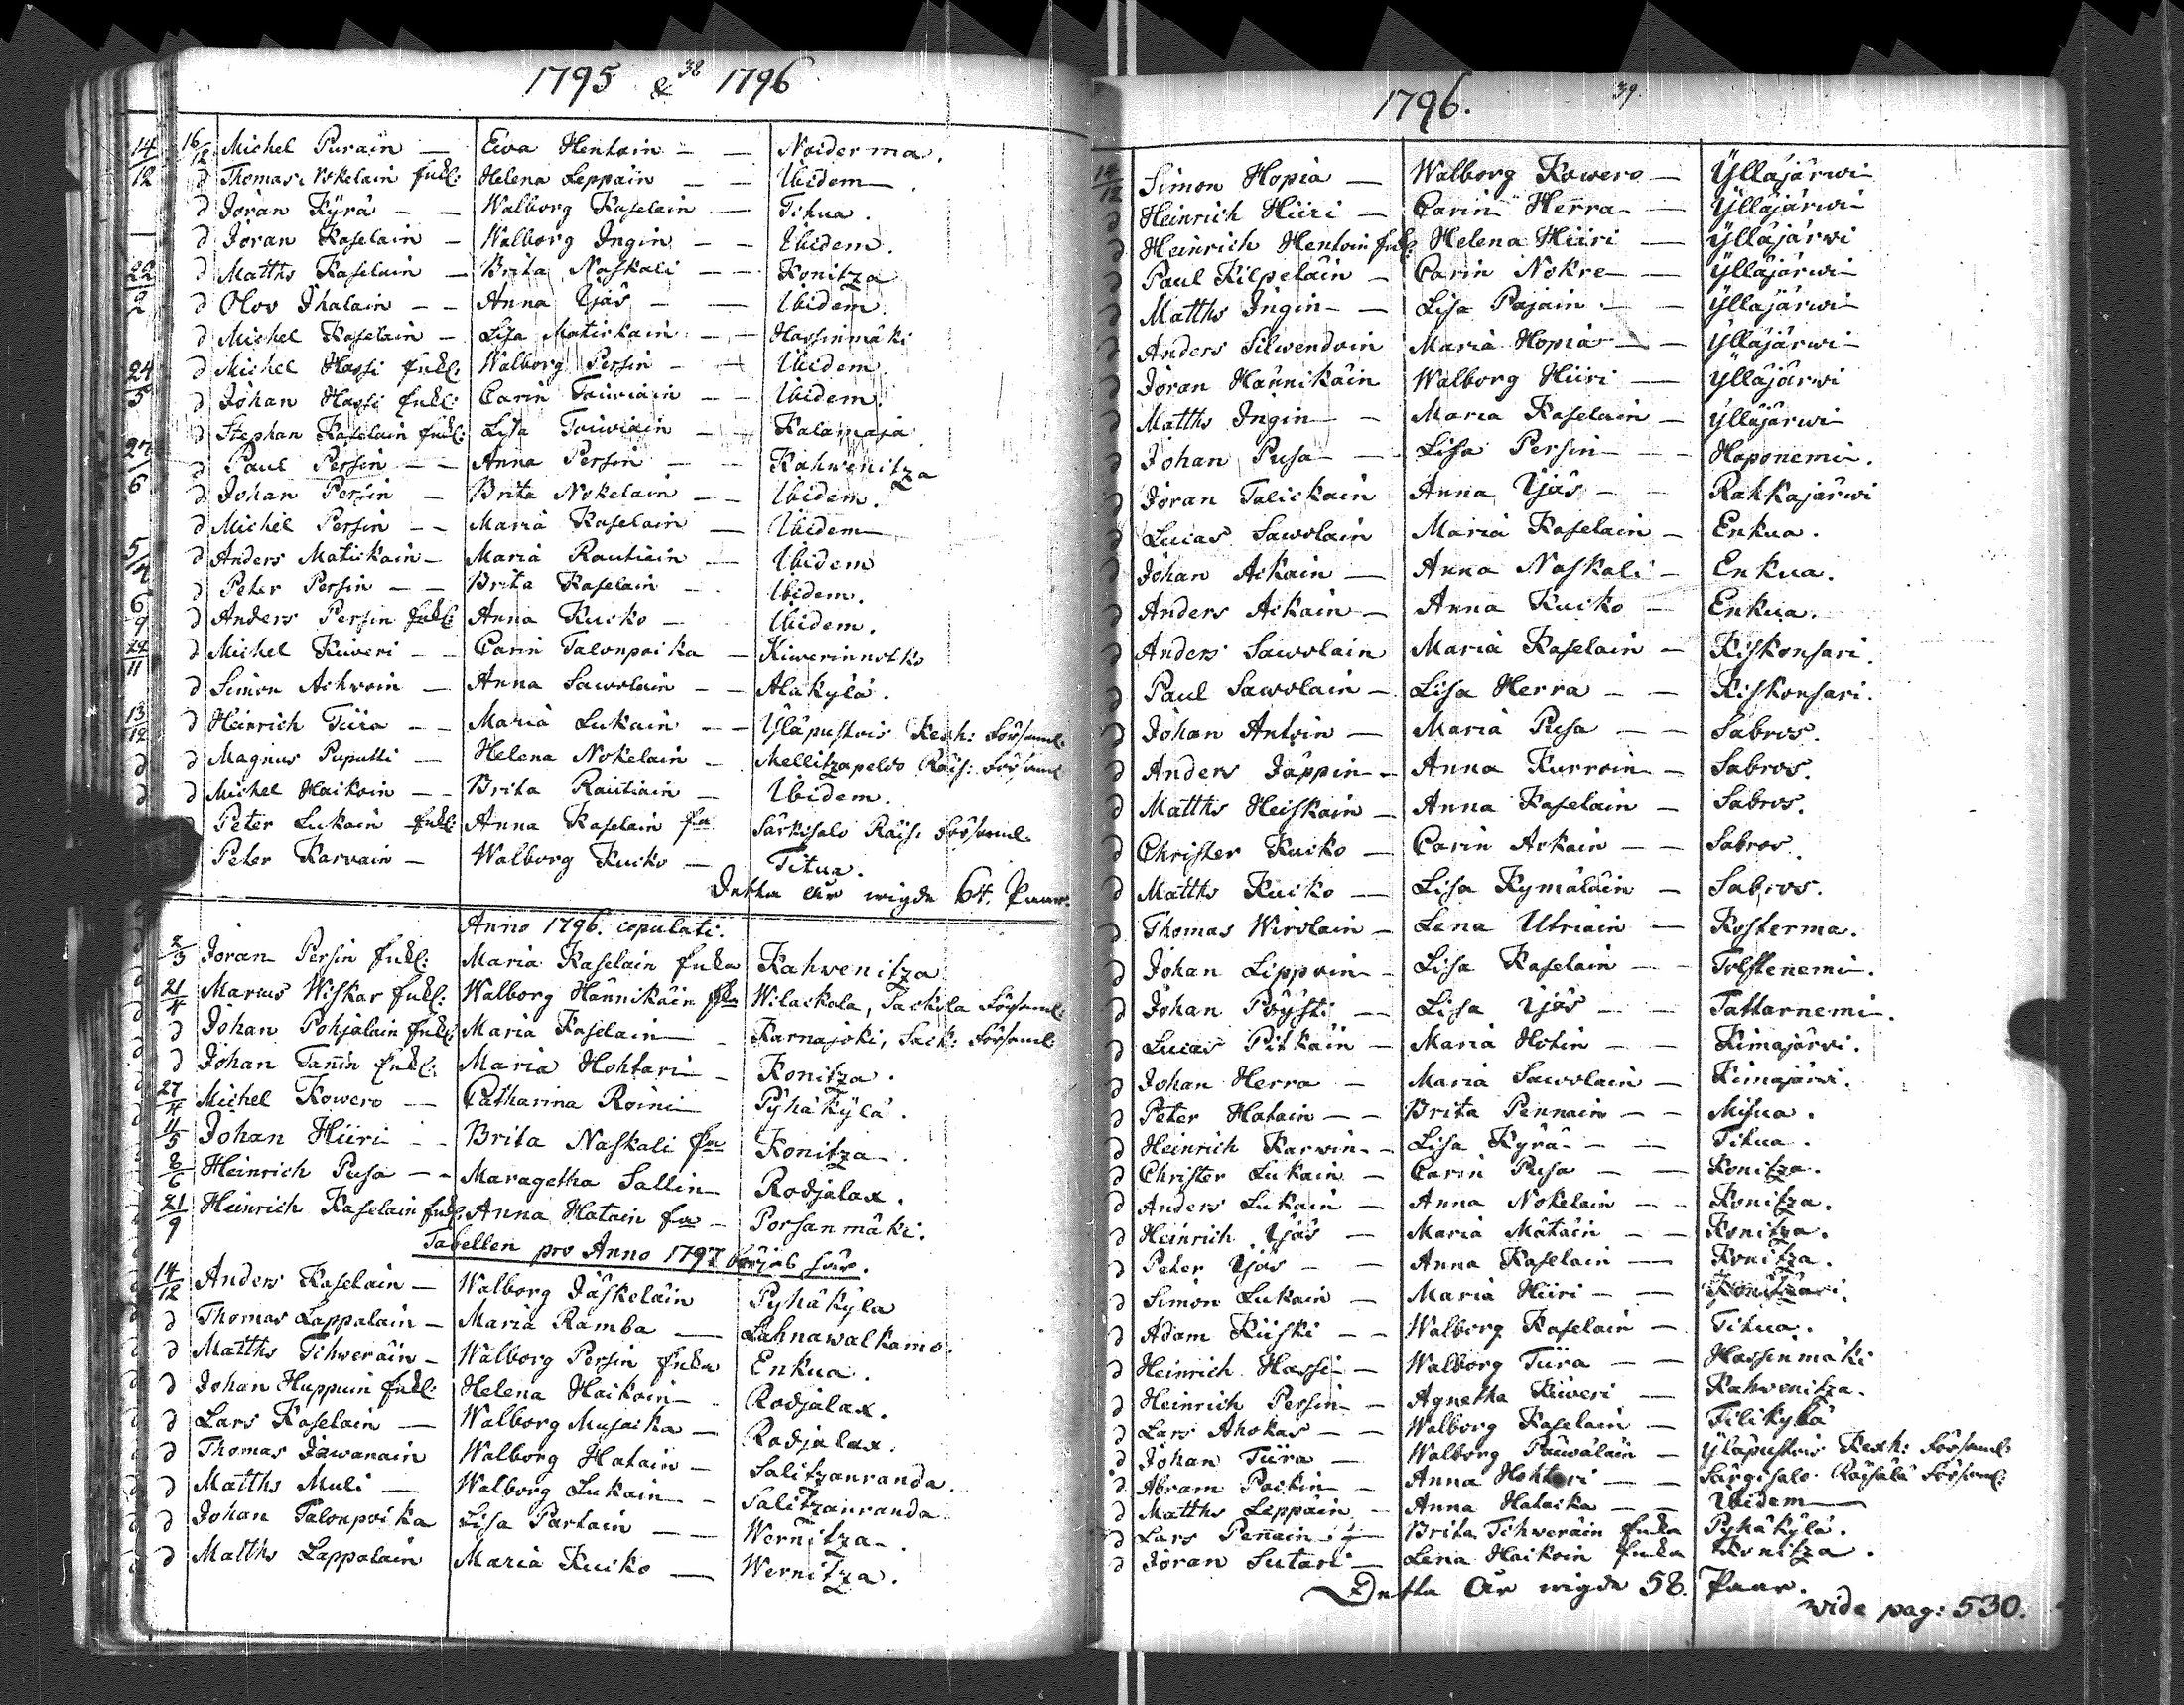 1795 & 1796
38
16/12 Michel Purain — Ewa Hentoin — — Noiderma.
d Thomas Nokelain fukl: Helena Leppäin — — Ibidem.
d Jöran Kyrä — — Walborg Kaselain — Titua.
d Jöran Kaselain — Walborg Ingin — — Ibidem.
d Matths Kaselain — Brita Naskali — — Konitza
d Olov Ihalain — — Anna Yjäs — — Ibidem.
d Michel Kaselain — Lisa Matickain — — Hassinmäki
d Michel Hassi fukl: Walborg Persin — — Ibidem.
d Johan Hassi fukl: Carin Toiwiain — — Ibidem.
d Stephan Kaselain fukl: Lisa Toiwiain — — Kalamaja
d Paul Persin — — Anna Persin — — Kahwenitza
d Johan Persin — Brita Nokelain — — Ibidem.
d Michel Persin — — Maria Kaselain — Ibidem
d Anders Matickain — Maria Rautiain — Ibidem
d Peter Persin — — Brita Kaselain — Ibidem.
d Anders Persin fukl: Anna Kuiko — Ibidem.
d Michel Kiweri — — Carin Talonpoika — Kiwerinnotko
d Simon Achvoin — Anna Sawolain — — Alakylä.
d Heinrich Tiira — — Maria Lukain — — Yläpustois Kexh: Församl:
d Magnus Puputti — Helena Nokelain — Mellitzapeldo Räis: Församl:
d Michel Haikoin — — Brita Rautiain — Ibidem.
Peter Lukain fukl: Anna Kaselain fa Särkisalo Räis: Församl:
Peter Karvain — Walborg Kuiko — Titua.
Detta År wigde 64. Paar.
Anno 1796. copulati.
2/3 Jöran Persin fukl: Maria Kaselain fuka Kahwenitza
21/4 Marcus Wiskar fukl: Walborg Hännikäin fa Wilackala, Sackola Församl:
d Johan Pohjalain fukl: Maria Kaselain — Karnajoki, Sack: Församl:
d Johan Tanin fukl: Maria Hohtari — Konitza.
27/4 Michel Kowero — Catharina Roini Pyhäkylä.
11/5 Johan Hiiri — — Brita Naskali fa Konitza.
8/6 Heinrich Pusa — — Maragetha Sallin Rodjalax.
21/9 Heinrich Kaselain fukl: Anna Hatain fa — Porsanmäki.
Tabellen pro Anno 1797 börjas här.
14/12 Anders Kaselain — Walborg Jäskeläin Pyhäkyla
d Thomas Lappalain — Maria Ramba — Lahnawalkamo.
d Matths Tihweräin — Walborg Persin fuka Enkua.
d Johan Huppuin fukl: Helena Haikoin Rodjalax.
d Lars Kaselain — Walborg Musacka — Rodjalax.
d Thomas Jäwanain Walborg Hatain — Salitzanranda
d Matths Muli — Walborg Lukain — Salitzanranda
d Johan Talonpoika Lisa Partain — — Wernitza.
d Matths Lappalain Maria Kuiko — Wernitza.
1796.
39.
14/12 Simon Hopia — Walborg Kowero — Ylläjärwi
d Heinrich Hiiri — Carin Herra — Ylläjärwi
d Heinrich Hentoin fukl: Helena Hiiri — Ylläjärwi
d Paul Kilpeläin — Carin Nokre — Ylläjärwi
d Matths Ingin — Lisa Pajain — Ylläjärwi
d Anders Silwendoin Maria Hopia — Ylläjärwi
d Jöran Hännikäin Walborg Hiiri — Ylläjärwi
d Matths Ingin — Maria Kaselain — Ylläjärwi
d Johan Pusa — Lisa Persin — — Haponemi.
d Jöran Talickain Anna Yjäs — — Rakkajärwi
d Lucas Sawolain Maria Kaselain — Enkua.
d Johan Ackain — Anna Naskali — Enkua.
d Anders Ackain — Anna Kuiko — Enkua.
d Anders Sawolain Maria Kaselain — Kiskonsari.
d Paul Sawolain — Lisa Herra — — Kiskonsari.
d Johan Antoin — Maria Pusa — — Sabros.
d Anders Jäppin — Anna Kurroin — Sabros.
d Matths Heiskain — Anna Kaselain — Sabros.
d Christer Kuiko — Carin Ackain — — Sabros.
d Matths Kuiko — Lisa Kymäläin — Sabros.
d Thomas Wirolain — Lena Utriain — Kosterma.
d Johan Lippoin — Lisa Kaselain — — Tolstenemi.
d Johan Pöysti — Lisa Yjäs — — Tattarnemi.
d Lucas Pitkäin — Maria Hotin — — Kimajärvi.
d Johan Herra — Maria Sawolain — Kimajärvi.
d Peter Hatain — — Brita Pennain — — Misua.
d Heinrich Karwin — Lisa Kyrä — — Titua.
d Christer Lukain — Carin Pusa — — Konitza.
d Anders Lukain — Anna Nokelain — — Konitza.
d Heinrich Yjäs — Maria Mätäin — — Konitza.
d Peter Yjäs — — Anna Kaselain — Konitza.
d Simon Lukain — Maria Hiiri — —
d Adam Kiiski — — Walborg Kaselain — Titua.
d Heinrich Hassi — Walborg Tiira — — Hassinmäki
d Heinrich Persin — Agnetha Kiweri — Kahwenitza.
d Lars Ahokas — — Walborg Kaselain — Tilikylä
d Johan Tiira — Walborg Paiwäläin — Yläpustois Kexh: Församl:
d Abram Poikin — Anna Hohtari — — Särgisalo. Räisälä Församl:
d Matths Leppäin — Anna Hatacka — — Ibidem
d Lars Penain — Brita Tihweräin fuka Pyhäkylä.
d Jöran Sutari — Lena Haikoin fuka Konitza.
Detta År wigde 58. Paar.
vide pag: 530.